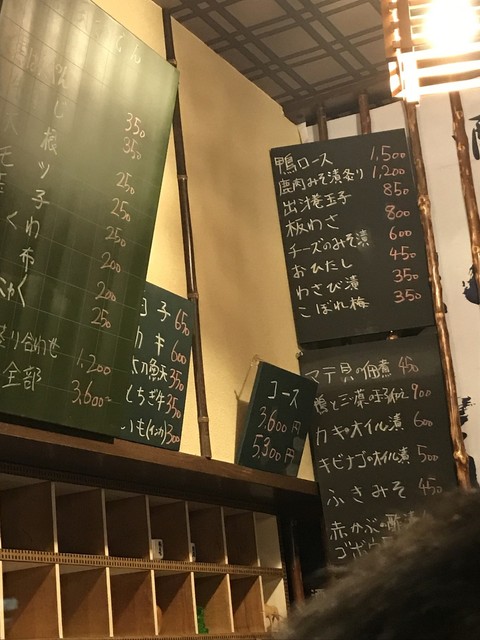 でん
じ 350
根 350
ツ 250
子 250
くわ 250
布 200
ゃく 200
250
盛り合わせ 1,200
全部 3,600-
子 650
カキ 600
350
しらちぎ 350
いも(インカ) 300
コース
3,600円
5,300円
鴨ロース 1,500
鹿肉みそ漬炙り 1,200
出汁巻玉子 850
板わさ 800
チーズのみそ漬 600
おひたし 450
わさび漬 350
こぼれ梅 350
マテ貝の佃煮 450
900
カキのオイル漬 600
キビナゴのオイル漬 500
ふきみそ 450
赤かぶの酢漬
ゴボウ